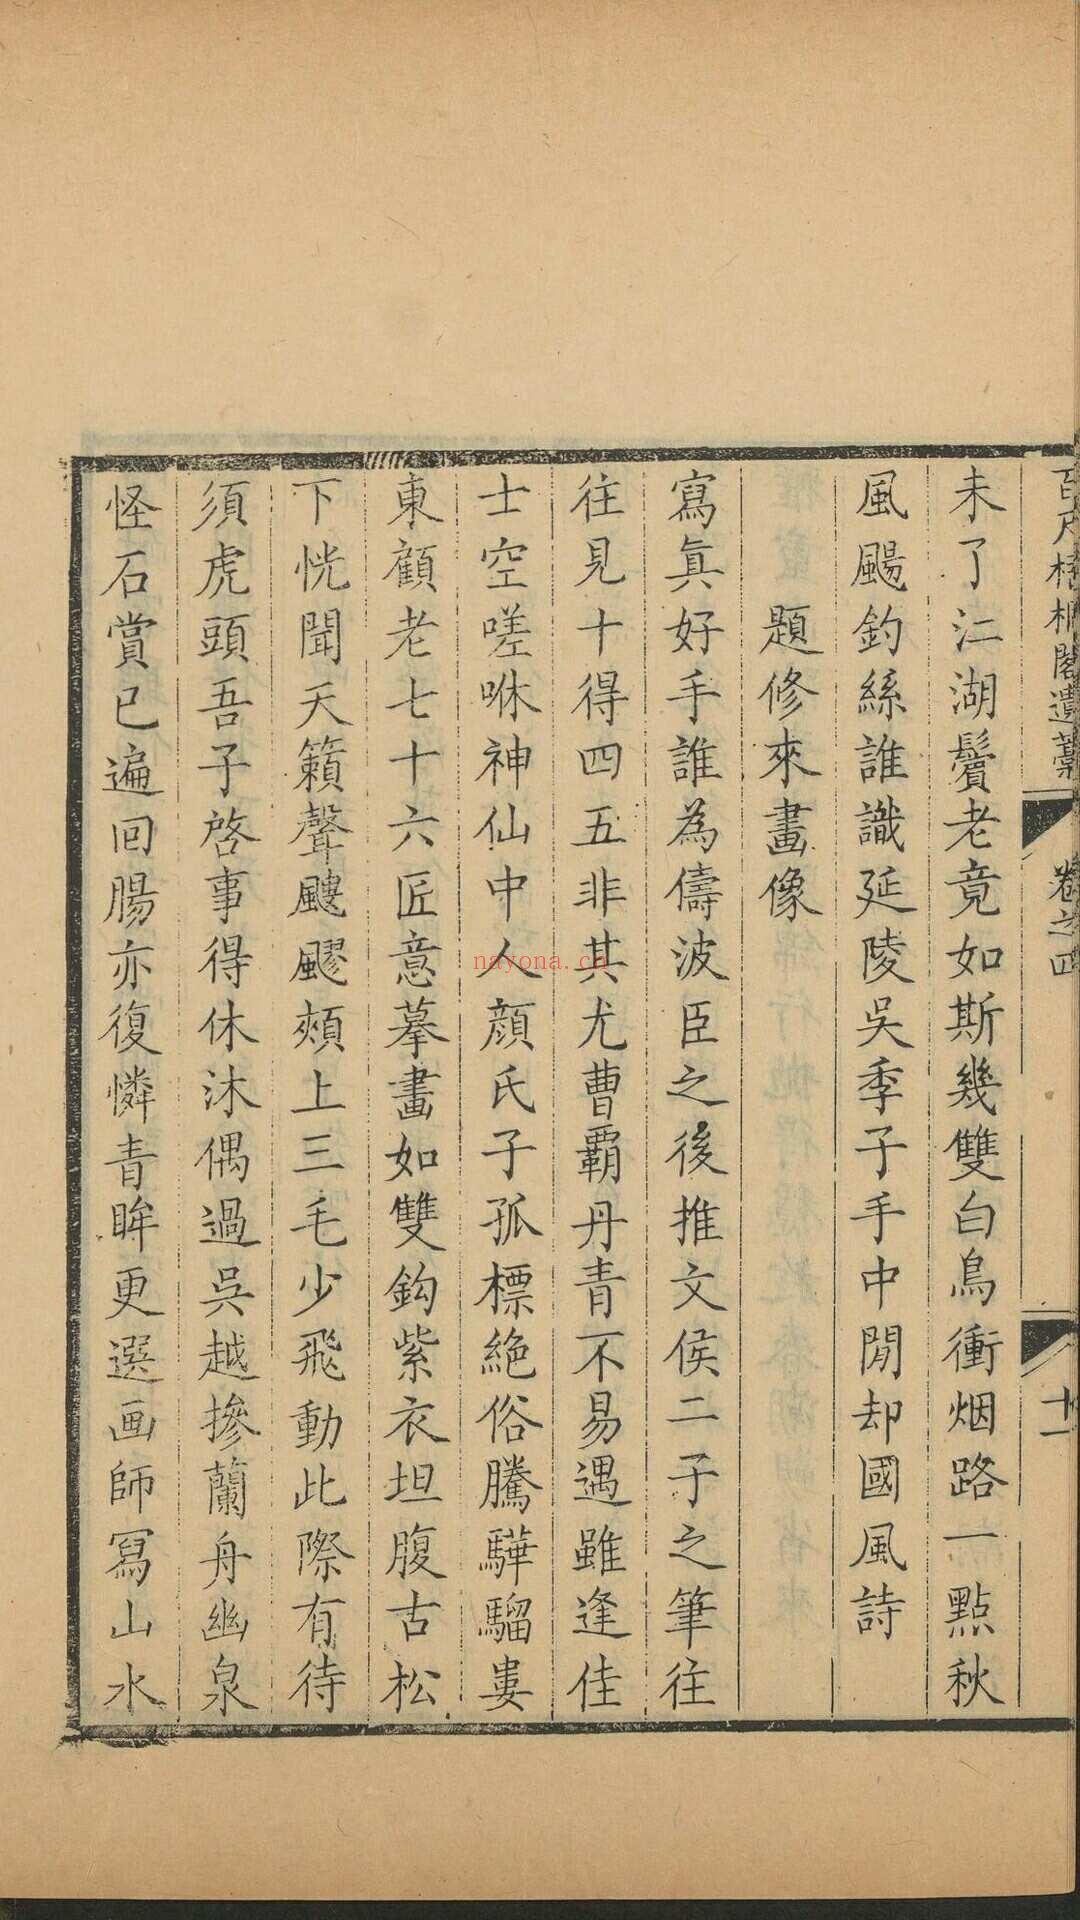 百尺梧桐閣遺藁 卷之四 十一
未了江湖鬢老竟如斯幾雙白鳥衝烟路一點秋
風颺釣絲誰識延陵吳季子手中閒却國風詩
題修來畫像
寫真好手誰為儔波臣之後推文侯二子之筆往
往見十得四五非其尤曹霸丹青不易遇雖逢佳
士空嗟咻神仙中人顏氏子孤標絶俗騰驊騮婁
東顧老七十六匠意摹畫如雙鈎紫衣坦腹古松
下恍聞天籟聲颼飀頰上三毛少飛動此際有待
須虎頭吾子啓事得休沐偶過吳越摻蘭舟幽泉
怪石賞已遍回腸亦復憐青眸更選画師冩山水
nayona.cn